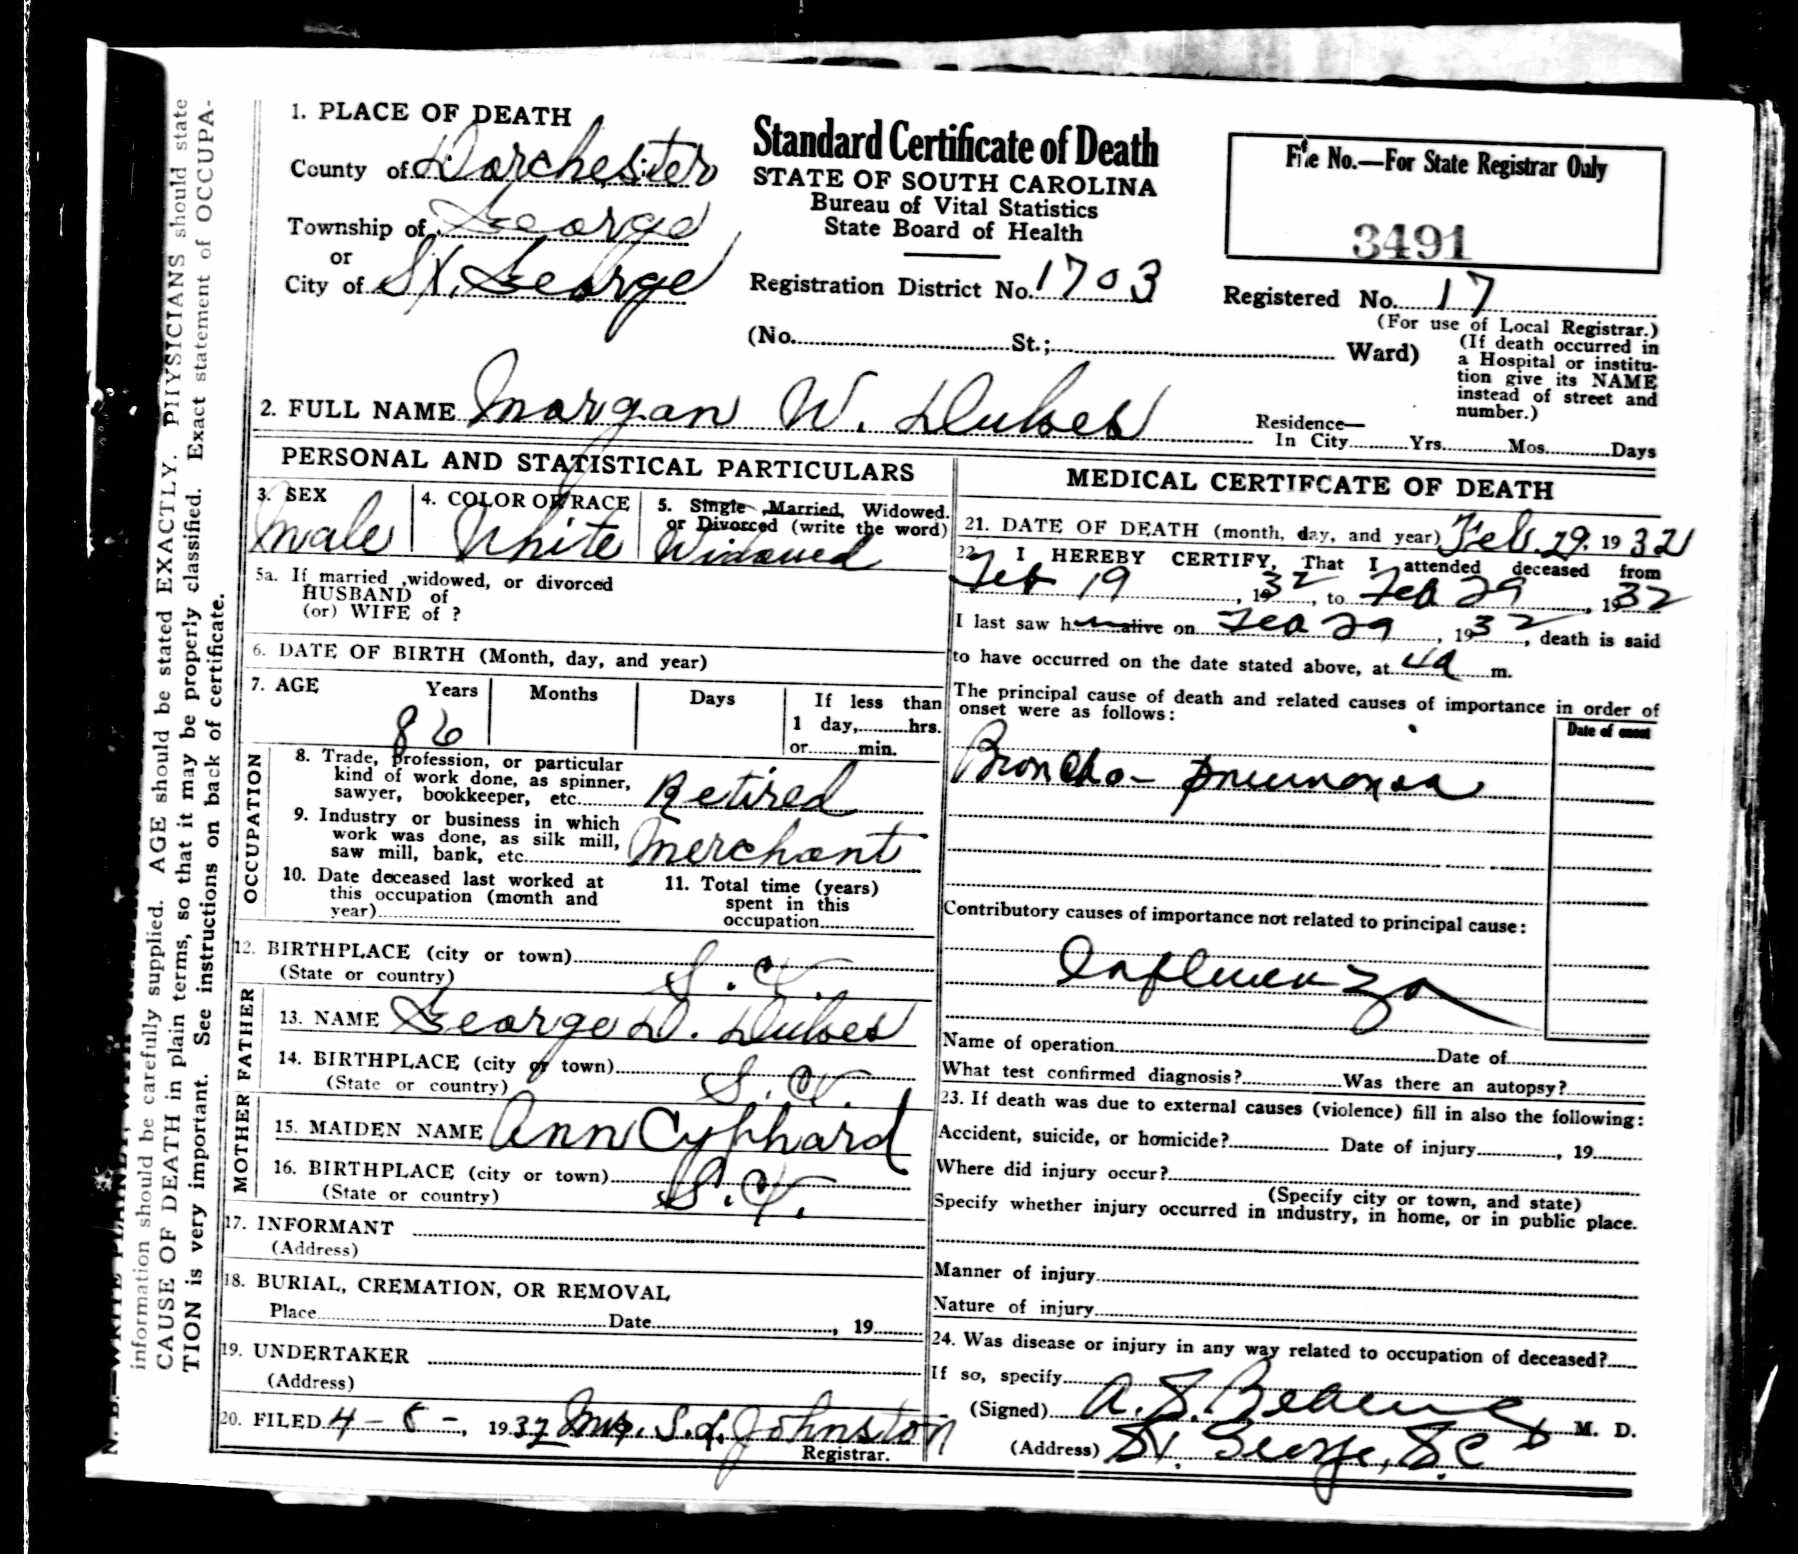 1. PLACE OF DEATH
County of Dorchester
Township of George
or
City of St. George
Standard Certificate of Death
STATE OF SOUTH CAROLINA
Bureau of Vital Statistics
State Board of Health
Registration District No. 1703
File No.—For State Registrar Only
3491
Registered No. 17
(For use of Local Registrar.)
(No. St.; Ward)
(If death occurred in
a Hospital or institu-
tion give its NAME
instead of street and
number.)
2. FULL NAME Morgan W. Dukes
Residence—
In City Yrs. Mos. Days
PERSONAL AND STATISTICAL PARTICULARS
3. SEX
Male
4. COLOR OR RACE
White
5. Single Married, Widowed.
or Divorced (write the word)
Widowed
5a. If married ,widowed, or divorced
HUSBAND of
(or) WIFE of ?
6. DATE OF BIRTH (Month, day, and year)
7. AGE Years Months Days If less than
1 day, hrs.
or min.
86
OCCUPATION
8. Trade, profession, or particular
kind of work done, as spinner,
sawyer, bookkeeper, etc. Retired
9. Industry or business in which
work was done, as silk mill,
saw mill, bank, etc. Merchant
10. Date deceased last worked at
this occupation (month and
year)
11. Total time (years)
spent in this
occupation
12. BIRTHPLACE (city or town)
(State or country) S. C.
FATHER
13. NAME George D. Dukes
14. BIRTHPLACE (city or town)
(State or country) S. C.
MOTHER
15. MAIDEN NAME Ann Cyphard
16. BIRTHPLACE (city or town)
(State or country) S. C.
17. INFORMANT
(Address)
18. BURIAL, CREMATION, OR REMOVAL
Place Date , 19
19. UNDERTAKER
(Address)
20. FILED 4-5-, 1932 Mrs. S. L. Johnston
Registrar.
MEDICAL CERTIFCATE OF DEATH
21. DATE OF DEATH (month, day, and year) Feb. 29. 1932
22. I HEREBY CERTIFY, That I attended deceased from
Feb 19, 1932, to Feb 29, 1932
I last saw h alive on Feb 29, 1932, death is said
to have occurred on the date stated above, at 4a m.
The principal cause of death and related causes of importance in order of
onset were as follows:
Date of onset
Broncho-pneumonia
Contributory causes of importance not related to principal cause:
Influenza
Name of operation Date of
What test confirmed diagnosis? Was there an autopsy?
23. If death was due to external causes (violence) fill in also the following:
Accident, suicide, or homicide? Date of injury , 19
Where did injury occur?
(Specify city or town, and state)
Specify whether injury occurred in industry, in home, or in public place.
Manner of injury
Nature of injury
24. Was disease or injury in any way related to occupation of deceased?
If so, specify
(Signed) A. S. M. D.
(Address) St. George, S.C
information should be carefully supplied. AGE should be stated EXACTLY. PHYSICIANS should state
CAUSE OF DEATH in plain terms, so that it may be properly classified. Exact statement of OCCUPA-
TION is very important. See instructions on back of certificate.